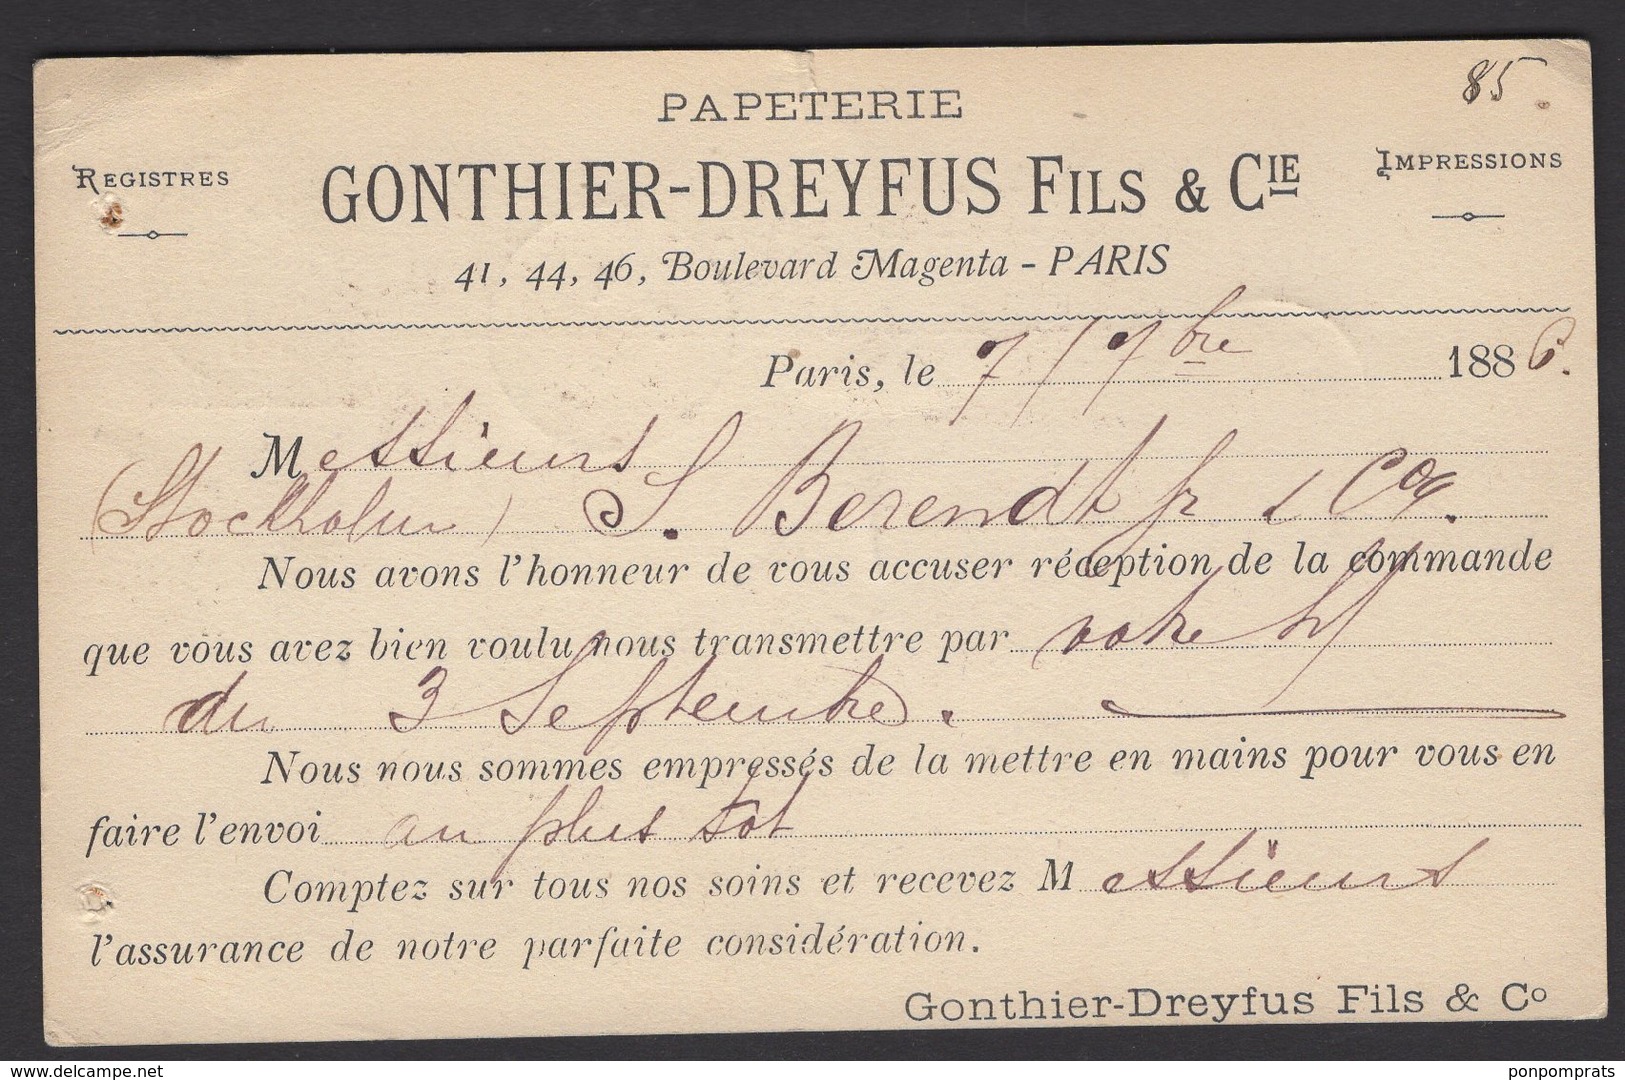 85
PAPETERIE
REGISTRES
IMPRESSIONS
GONTHIER-DREYFUS FILS & CIE
41, 44, 46, Boulevard Magenta - PARIS
Paris, le 7/7bre 1886.
Messieurs
(Stockholm) S. Berendt jr & Co.
Nous avons l'honneur de vous accuser réception de la commande
que vous avez bien voulu nous transmettre par votre
du 3 Septembre.
Nous nous sommes empressés de la mettre en mains pour vous en
faire l'envoi au plus tôt
Comptez sur tous nos soins et recevez Messieurs
l'assurance de notre parfaite considération.
Gonthier-Dreyfus Fils & Co
www.delcampe.net
ponpomprats